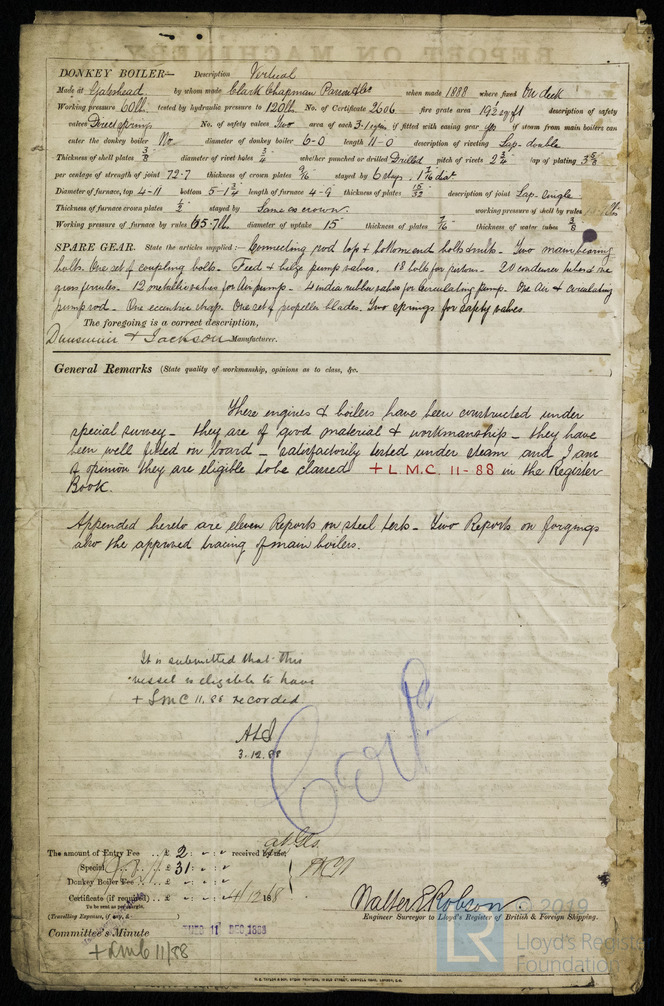 REPORT ON MACHINERY
DONKEY BOILER— Description Vertical
Made at Gateshead by whom made Clark Chapman Parsons &Co when made 1888 where fixed On deck
Working pressure 60lb tested by hydraulic pressure to 120lb No. of Certificate 2606 fire grate area 19½ sq ft description of safety
valves Direct spring No. of safety valves Two area of each 3.1 if fitted with easing gear yes if steam from main boilers can
enter the donkey boiler No diameter of donkey boiler 6-0 length 11-0 description of riveting Lap-double
Thickness of shell plates 3/8 diameter of rivet holes 3/4 whether punched or drilled Drilled pitch of rivets 2 3/4 lap of plating 3 5/8
per centage of strength of joint 72.7 thickness of crown plates 9/16 stayed by 6 stays. 1 7/16 diar
Diameter of furnace, top 4-11 bottom 5-1 3/4 length of furnace 4-9 thickness of plates 15/32 description of joint Lap-single
Thickness of furnace crown plates 1/2 stayed by Same as crown. working pressure of shell by rules lbs
Working pressure of furnace by rules 65.7lb diameter of uptake 15 thickness of plates 7/16 thickness of water tubes 3/8
SPARE GEAR. State the articles supplied:— Connecting rod top & bottom end bolts & nuts - Two main bearing
bolts. One set of coupling bolts - Feed & bilge pump valves. 18 bolts for piston - 20 condenser tubes & one
gross ferrules. 12 metallic valves for Air pump - 4 india rubber valves for Circulating pump. One Air & circulating
pump rod - One eccentric strap. One set of propeller blades. Two springs for safety valves.
The foregoing is a correct description,
Dunsmuir & Jackson Manufacturer.
General Remarks (State quality of workmanship, opinions as to class, &c.
These engines & boilers have been constructed under
special survey - they are of good material & workmanship - they have
been well fitted on board - satisfactorily tested under steam and I am
of opinion they are eligible to be classed + L.M.C. 11-88 in the Register
Book.
Appended hereto are eleven Reports on steel tests - Two Reports on forgings
also the approved tracing of main boilers.
It is submitted that this
vessel is eligible to have
+ LMC 11.88 recorded
3.12.88
The amount of Entry Fee .. £ 2 : - : - received by me,
Special .. £ 31 : - : -
Donkey Boiler Fee .. £ : - : -
Certificate (if required) .. £ : - : - 4/12 1888
To be sent as per margin.
(Travelling Expenses, if any, £ )
Walter E Robson
Engineer Surveyor to Lloyd's Register of British & Foreign Shipping.
Committee's Minute TUES 11 DEC 1888
+ LMC 11/88
© 2019
LR
Lloyd's Register
Foundation